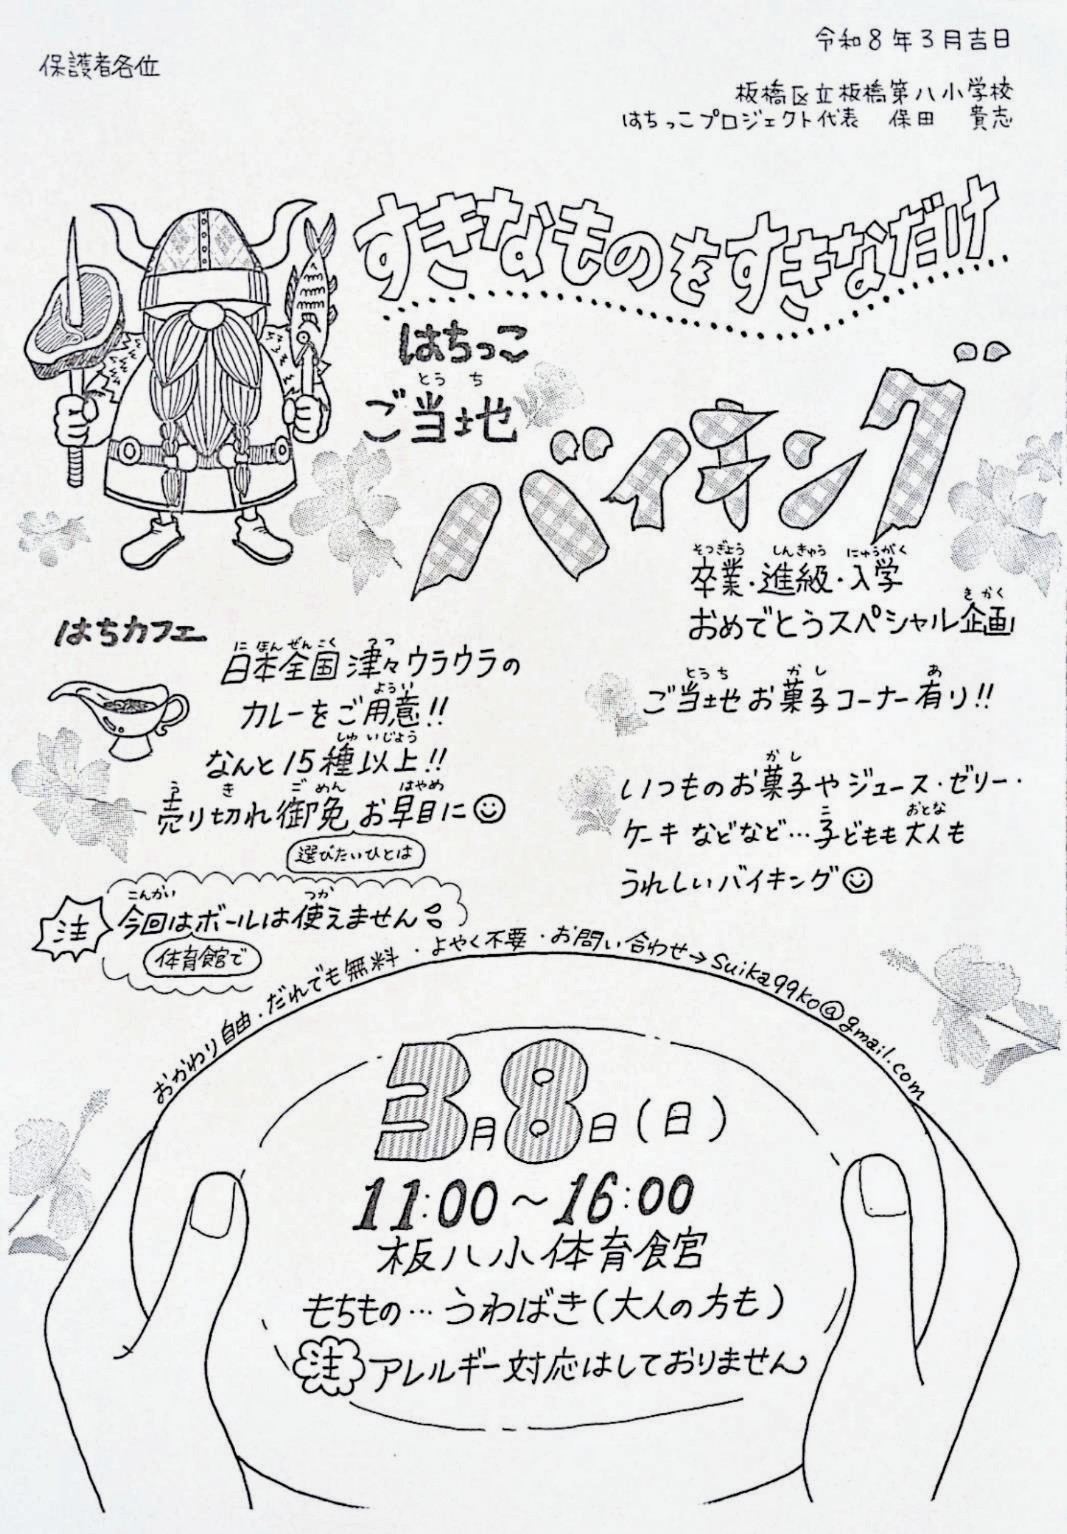 令和8年3月吉日
保護者各位
板橋区立板橋第八小学校
はちっこプロジェクト代表 保田 貴志
すきなものをすきなだけ
はちっこ
とうち
ご当地
バイキング
そつぎょう しんきゅう にゅうがく
卒業・進級・入学
きかく
おめでとうスペシャル企画!
はちカフェ
にほんぜんこく つつ
日本全国津々ウラウラの
ようい
カレーをご用意!!
しゅ いじょう
なんと15種以上!!
う き ごめん はやめ
売り切れ御免 お早目に
選びたいひとは
とうち かし あ
ご当地お菓子コーナー有り!!
かし
いつものお菓子やジュース・ゼリー・
こ おとな
ケーキなどなど…子どもも大人も
うれしいバイキング
注
こんかい つか
今回はボールは使えません
体育館で
おかわり自由・だれでも無料・よやく不要・お問い合わせ→Suika99ko@gmail.com
3月8日(日)
11:00~16:00
板八小体育館
もちもの…うわばき(大人の方も)
注 アレルギー対応はしておりません